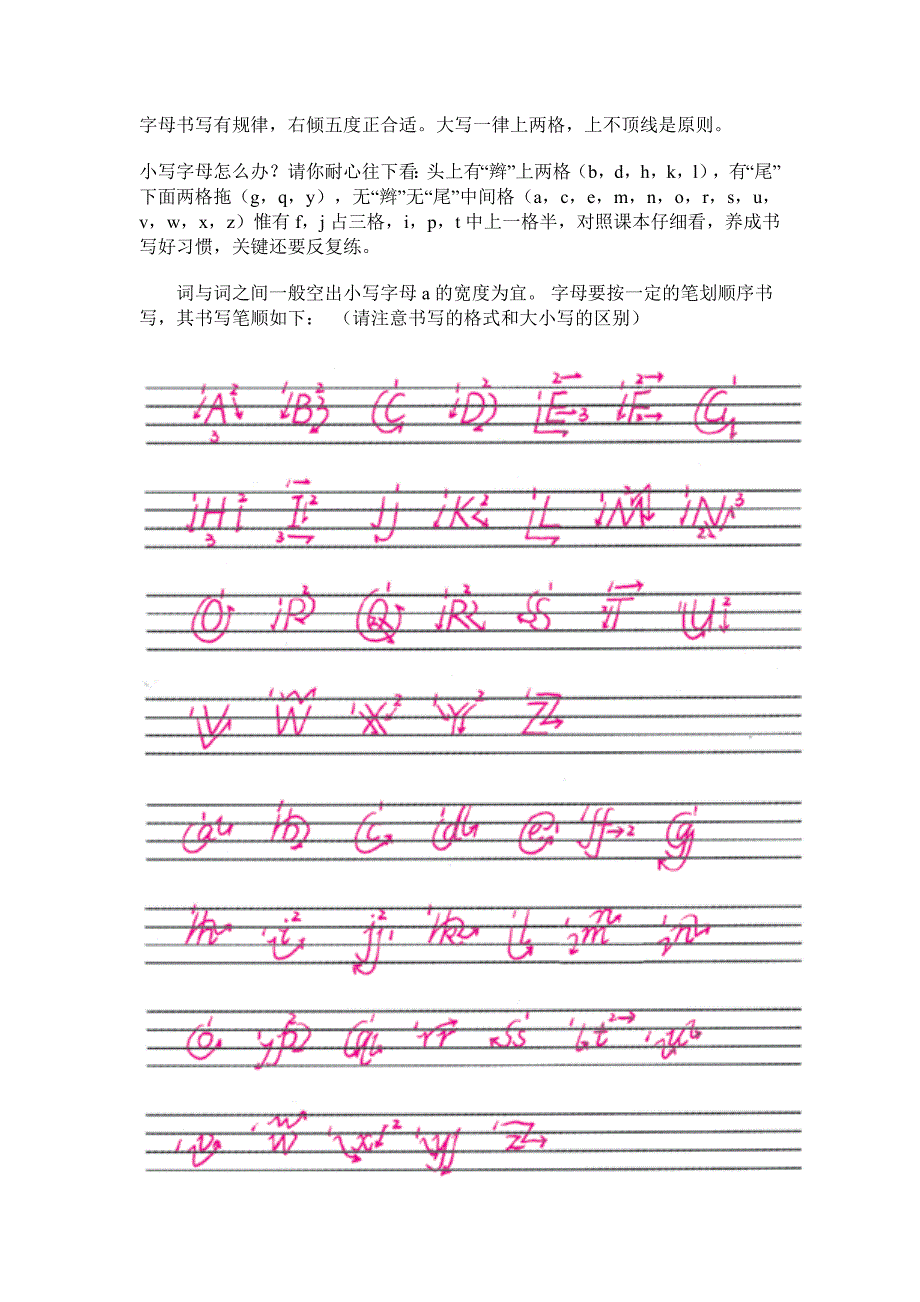 字母书写有规律，右倾五度正合适。大写一律上两格，上不顶线是原则。
小写字母怎么办？请你耐心往下看：头上有“辫”上两格（b，d，h，k，l），有“尾”
下面两格拖（g，q，y），无“辫”无“尾”中间格（a，c，e，m，n，o，r，s，u，
v，w，x，z）惟有 f，j 占三格，i，p，t 中上一格半，对照课本仔细看，养成书
写好习惯，关键还要反复练。
词与词之间一般空出小写字母 a 的宽度为宜。 字母要按一定的笔划顺序书
写，其书写笔顺如下： （请注意书写的格式和大小写的区别）
A B C D E F G
H I J K L M N
O P Q R S T U
V W X Y Z
a b c d e f g
h i j k l m n
o p q r s t u
v w x y z